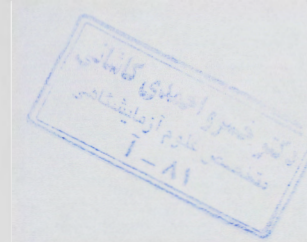 دکتر خسرو احمدی کاشانی
متخصص علوم آزمایشگاهی
آ – ۸۱